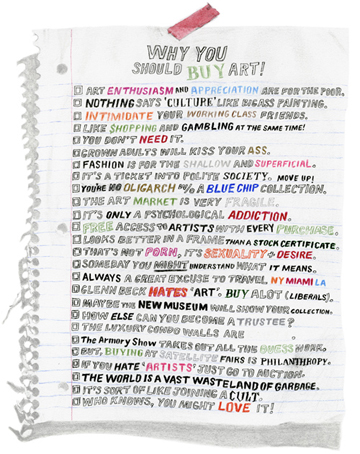 WHY YOU
SHOULD BUY ART!
ART ENTHUSIASM AND APPRECIATION ARE FOR THE POOR.
NOTHING SAYS 'CULTURE' LIKE BIGASS PAINTING.
INTIMIDATE YOUR WORKING CLASS FRIENDS.
LIKE SHOPPING AND GAMBLING AT THE SAME TIME!
YOU DON'T NEED IT.
GROWN ADULTS WILL KISS YOUR ASS.
FASHION IS FOR THE SHALLOW AND SUPERFICIAL.
IT'S A TICKET INTO POLITE SOCIETY. MOVE UP!
YOU'RE NO OLIGARCH W/O A BLUE CHIP COLLECTION.
THE ART MARKET IS VERY FRAGILE.
IT'S ONLY A PSYCHOLOGICAL ADDICTION.
FREE ACCESS TO ARTISTS WITH EVERY PURCHASE.
LOOKS BETTER IN A FRAME THAN A STOCK CERTIFICATE.
THAT'S NOT PORN, IT'S SEXUALITY + DESIRE.
SOMEDAY YOU MIGHT UNDERSTAND WHAT IT MEANS.
ALWAYS A GREAT EXCUSE TO TRAVEL NY MIAMI LA
GLENN BECK HATES 'ART'. BUY ALOT (LIBERALS).
MAYBE THE NEW MUSEUM WILL SHOW YOUR COLLECTION.
HOW ELSE CAN YOU BECOME A TRUSTEE?
THE LUXURY CONDO WALLS ARE
The Armory Show TAKES OUT ALL THE GUESS WORK.
BUT, BUYING AT SATELLITE FAIRS IS PHILANTHROPY.
IF YOU HATE 'ARTISTS' JUST GO TO AUCTION.
THE WORLD IS A VAST WASTELAND OF GARBAGE.
IT'S SORT OF LIKE JOINING A CULT.
WHO KNOWS, YOU MIGHT LOVE IT!